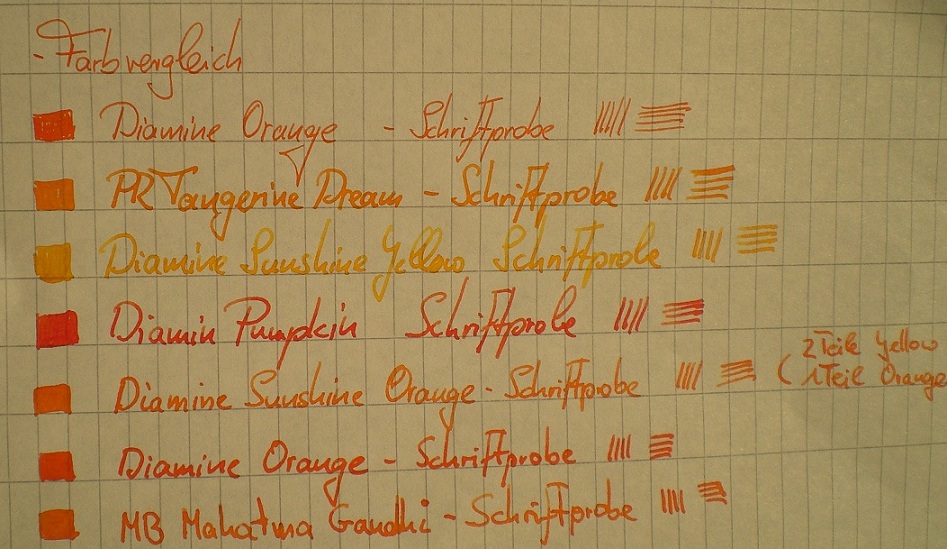 - Farbvergleich
Diamine Orange - Schriftprobe
PR Tangerine Dream - Schriftprobe
Diamine Sunshine Yellow Schriftprobe
Diamin Pumpkin Schriftprobe
Diamine Sunshine Orange - Schriftprobe (2 Teile Yellow
1 Teil Orange
Diamine Orange - Schriftprobe
MB Mahatma Gandhi - Schriftprobe